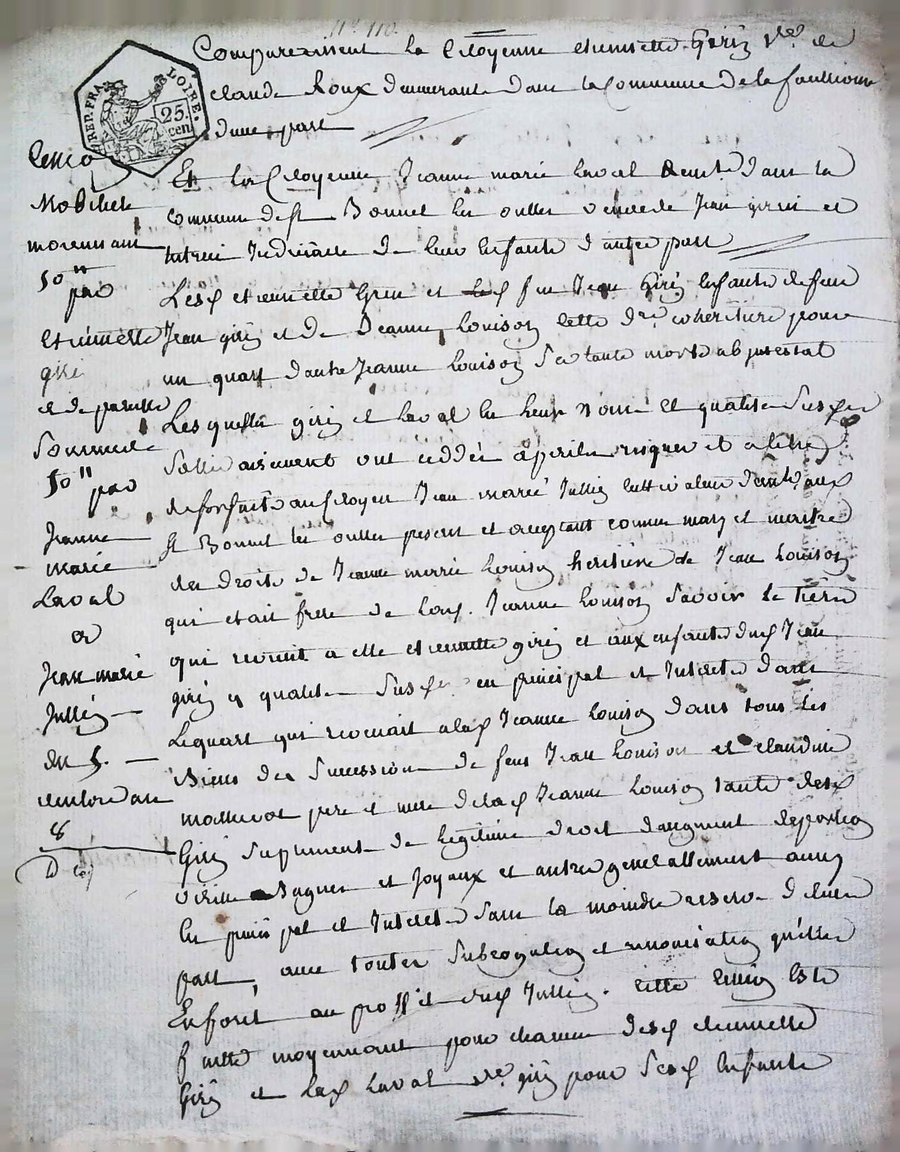 N° 110
Comparaissent la Citoyenne etiennette Giriy Vve de
claude Roux demeurante dans la Commune de la
d'une part
REP. FRA. LOIRE.
25. cen.
Et la Citoyenne Jeanne marie laval demte dans la
commune de st Bonnet les oulles veuve de Jean giriy et
tutrice Judiciaire de leur Enfants d'autre part
Lesd etiennette Giriy et led fu Jean Giriy Enfants de feue
Jean giriy et de Jeanne Louison cohéritière pour
un quart d'autre Jeanne Louison Sa tante morte abintestat
Lesquelles giriy et laval En leurs Noms Et qualités Susd
Sollidairement ont ceddés apérils risques et a titre
deforfait au Citoyen Jean marie Jullien cultivateur demt aux
st Bonnet les oulles present et acceptant comme mary et maitre
des droits de Jeanne marie Louison heritière de Jean Louison
qui etait frere de lad. Jeanne Louison Savoir Le tiers
qui revenait a elle etiennette giriy et aux enfants dud Jean
giriy es qualités Susd en principal et Interets dans
Lequart qui revenait alad Jeanne Louison dans tous les
Biens des Sucessions de feus Jean Louison et claudine
pere et mere delad Jeanne Louison tante desd
Giriy Suplement de legitime droit daugment deportion
virille Bagues et Joyaux et autres generallement
En principal et Interets Sans la moindre reserve d'elles
part, avec toutes Subrogation et renonciation qu'elles
Enfont au proffit dud Jullien. cette Cession Est
faitte moyennant pour chacune desd etiennette
Giriy et lad Laval vve giriy pour Sesd Enfants
Cession
Mobiliere
moyennant
50"
par
Etiennette
giri
et de pareille
Somme de
50"
par
Jeanne
marie
Laval
a
Jean marie
Jullien
du 5.
8